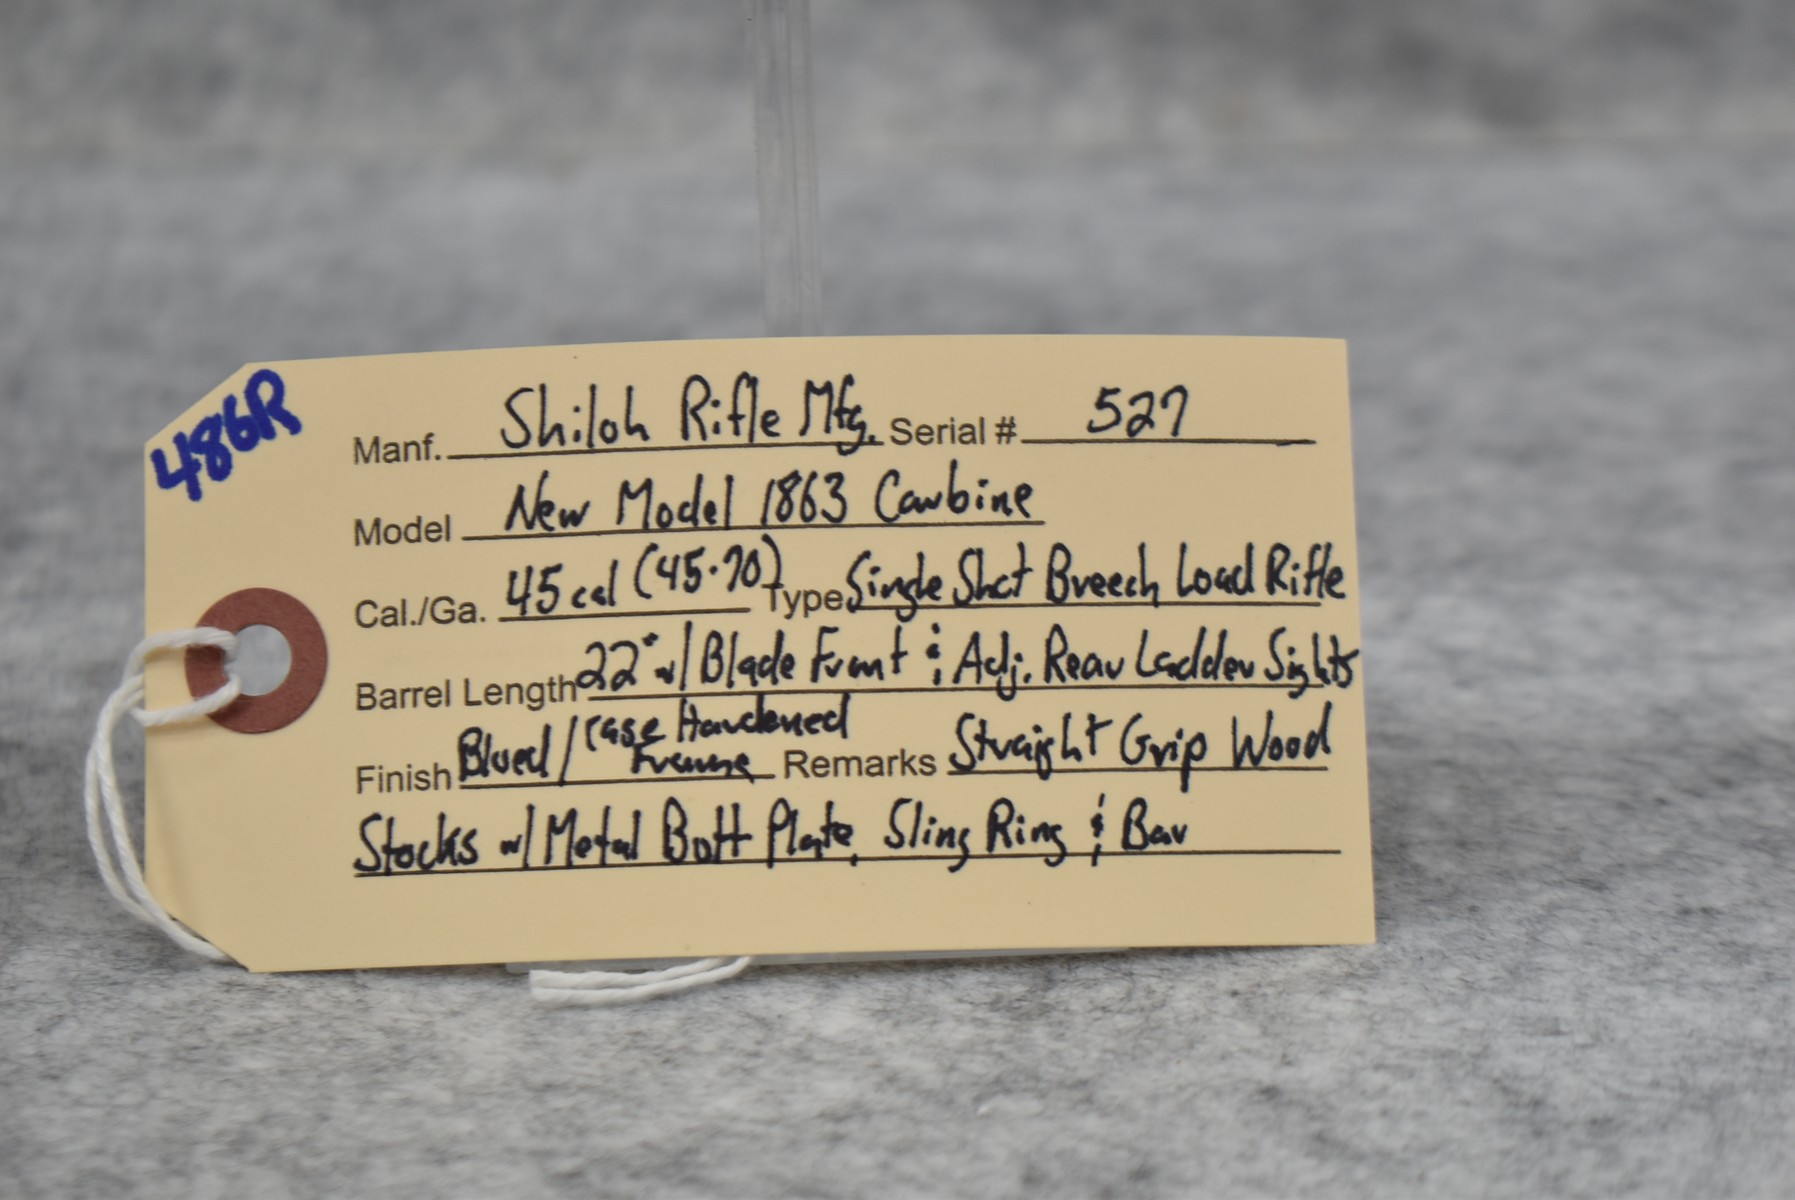 486R
Manf. Shiloh Rifle Mfg. Serial # 527
Model New Model 1863 Carbine
Cal./Ga. 45 cal (45-70) Type Single Shot Breech Load Rifle
Barrel Length 22" w/ Blade Front & Adj. Rear Ladder Sights
Finish Blued / Case Hardened Frame Remarks Straight Grip Wood
Stocks w/ Metal Butt Plate, Sling Ring & Bar